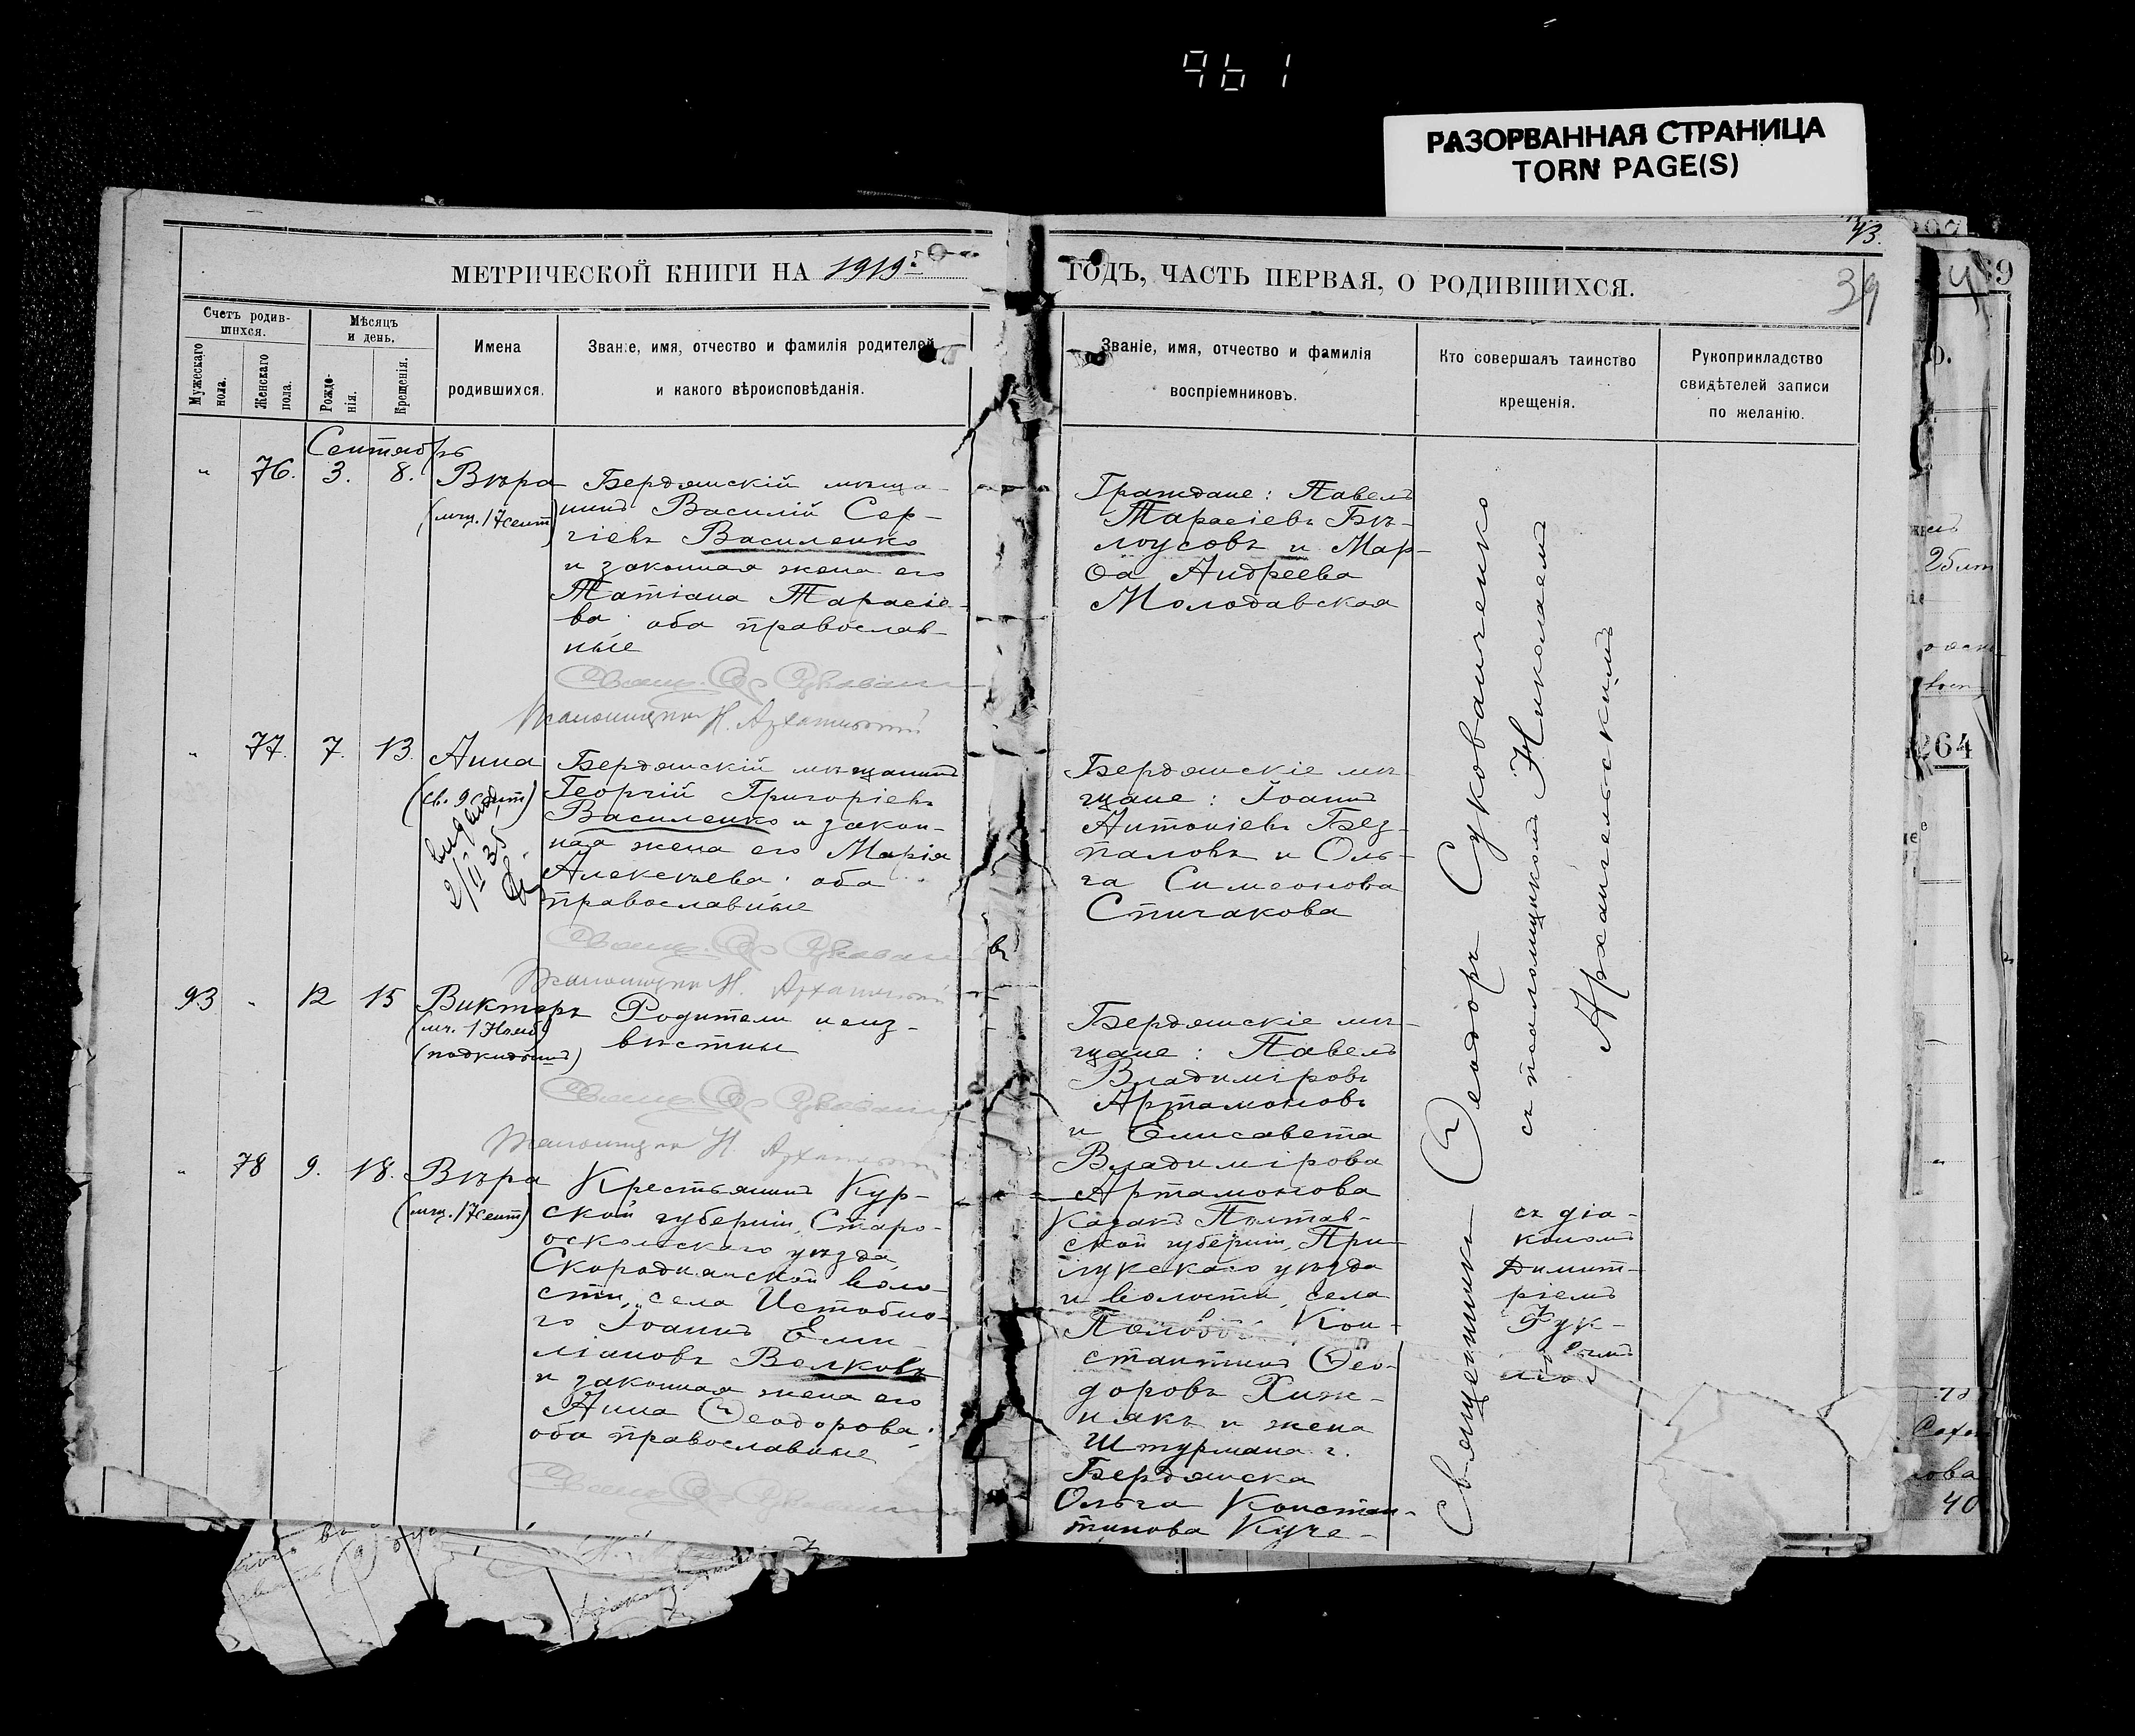 961
РАЗОРВАННАЯ СТРАНИЦА
TORN PAGE(S)
43.
39
МЕТРИЧЕСКОЙ КНИГИ НА 1919 ГОДЪ, ЧАСТЬ ПЕРВАЯ, О РОДИВШИХСЯ.
Счетъ родив-
шихся.
Мужескаго
пола.
Женскаго
пола.
Мѣсяцъ
и день.
Рожде-
нія.
Крещенія.
Имена
родившихся.
Званіе, имя, отчество и фамилія родителей
и какого вѣроисповѣданія.
Званіе, имя, отчество и фамилія
воспріемниковъ.
Кто совершалъ таинство
крещенія.
Рукоприкладство
свидѣтелей записи
по желанію.
Сентябрь
" 76. 3. 8. Вѣра
(мчц. 17 сент)
Бердянскій мѣща-
нинъ Василій Сер-
гіевъ Василенко
и законная жена его
Татіана Тарасіе-
ва; оба православ-
ные
Граждане: Павелъ
Тарасіевъ Бѣ-
лоусовъ и Мар-
ѳа Андреева
Молодавская
Псаломщикъ Н. Архангельскій
" 77. 7. 13. Анна
(св. 9 сент)
выдана
2/II 35
Бердянскій мѣщанинъ
Георгій Григоріевъ
Василенко и закон-
ная жена его Марія
Алексѣева; оба
православные
Бердянскіе мѣ-
щане: Іоаннъ
Антоніевъ Без-
паловъ и Оль-
га Симеонова
Спичакова
Псаломщикъ Н. Архангельскій
93 " 12 15 Викторъ
(мч. 11 Нояб)
(подкидышъ)
Родители неиз-
вѣстны
Бердянскіе мѣ-
щане: Павелъ
Владиміровъ
Артамоновъ
и Елисавета
Владимірова
Артамонова
Псаломщикъ Н. Архангельскій
" 78 9. 18. Вѣра
(мчц. 17 сент)
Крестьянинъ Кур-
ской губерніи, Старо-
оскольскаго уѣзда,
Скороднянской воло-
сти, села Истобно-
го Іоаннъ Еми-
ліановъ Волковъ
и законная жена его
Анна Ѳеодорова;
оба православные
Козакъ Полтав-
ской губерніи, При-
лукскаго уѣзда
и волости, села
Кон-
стантинъ Ѳео-
доровъ Хиж-
някъ и жена
Штурмана г.
Бердянска
Ольга Констан-
тинова Куче-
Священникъ Ѳеодоръ Суковаченко
съ псаломщикомъ Николаемъ
Архангельскимъ
съ діа-
кономъ
Димит-
ріемъ
264
40